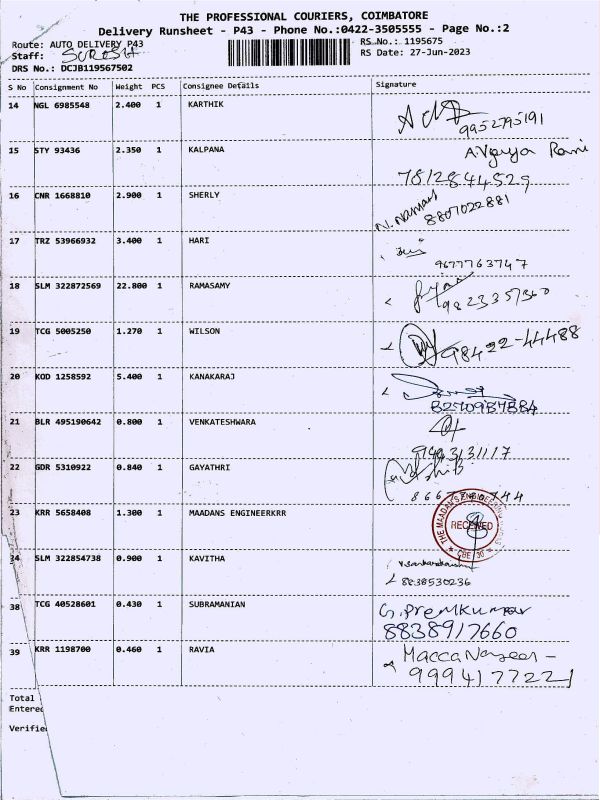 THE PROFESSIONAL COURIERS, COIMBATORE
Delivery Runsheet - P43 - Phone No.:0422-3505555 - Page No.:2
Route: AUTO DELIVERY P43 RS No.: 1195675
Staff: SURESH RS Date: 27-Jun-2023
DRS No.: DCJB119567502
S No Consignment No Weight PCS Consignee Details Signature
14 NGL 6985548 2.400 1 KARTHIK
9952795191
15 STY 93436 2.350 1 KALPANA A.Vijaya Rani
7812844529
16 CNR 1668810 2.900 1 SHERLY
8807022881
17 TRZ 53966932 3.400 1 HARI
9677763747
18 SLM 322872569 22.800 1 RAMASAMY
9823357360
19 TCG 5005250 1.270 1 WILSON
98422-44488
20 KOD 1258592 5.400 1 KANAKARAJ
21 BLR 495190642 0.800 1 VENKATESHWARA
22 GDR 5310922 0.840 1 GAYATHRI
23 KRR 5658408 1.300 1 MAADANS ENGINEERKRR
RECEIVED
CBE 30
34 SLM 322854738 0.900 1 KAVITHA
8838530236
38 TCG 40528601 0.430 1 SUBRAMANIAN G.PremKumar
8838917660
39 KRR 1198700 0.460 1 RAVIA Macca Naseer -
9994177221
Total
Entered
Verifie